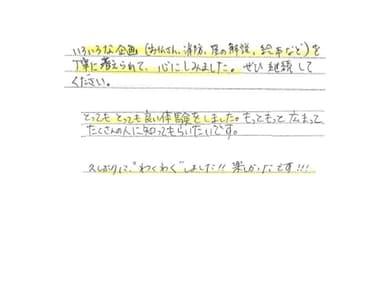 いろいろな企画(お坊さん、消防、星の解説、絵本など)を
丁寧に考えられて、心にしみました。ぜひ継続して
ください。
とっても とっても良い体験をしました。もってもって広まって
たくさんの人に知ってもらいたいです。
久しぶりに"わくわく"しました!! 楽しかったです!!!